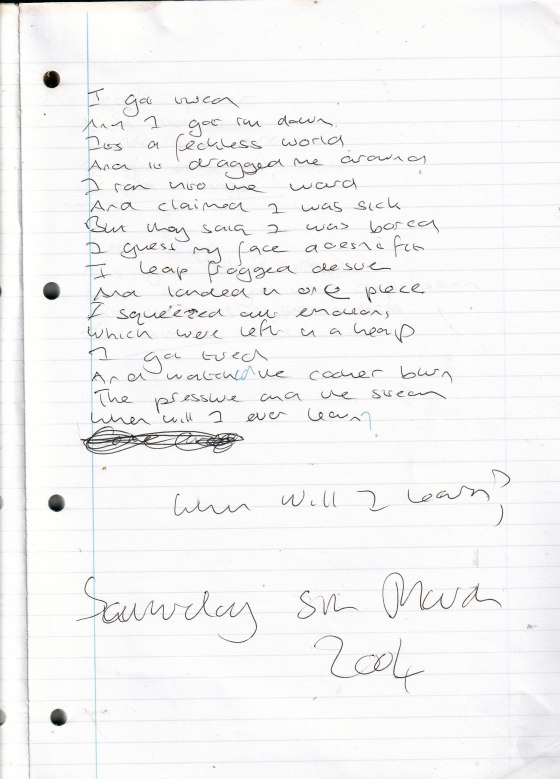 I got tired
And I got run down
It's a feckless world
And it dragged me around
I ran into the ward
And claimed I was sick
But they said I was bored
I guess my face doesn't fit
I leap frogged desire
And landed in one piece
I squeezed out emotions
Which were left in a heap
I got tired
And watched the cooker burn
The pressure and the steam
When will I ever learn?
When will I learn?
Saturday March
2004